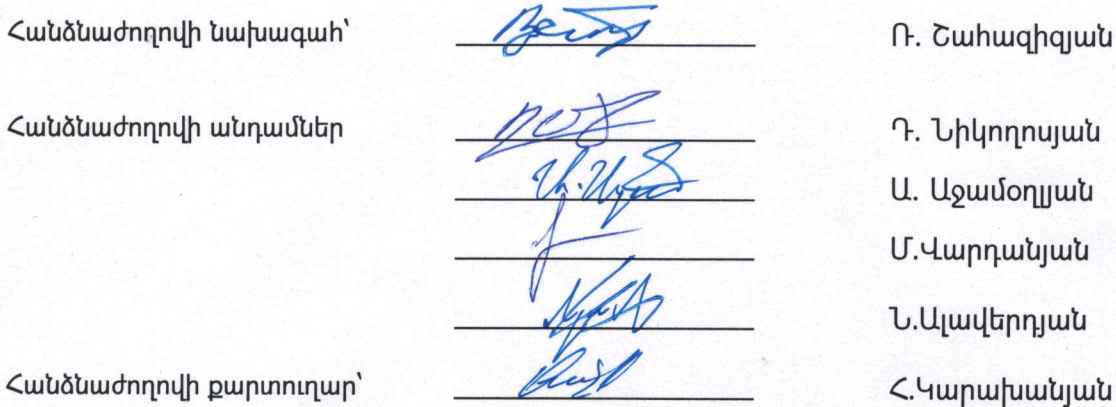 Հանձնաժողովի նախագահ՝ Ռ. Շահազիզյան
Հանձնաժողովի անդամներ Դ. Նիկողոսյան
Ա. Աջամօղլյան
Մ.Վարդանյան
Ն.Ալավերդյան
Հանձնաժողովի քարտուղար՝ Հ.Կարախանյան